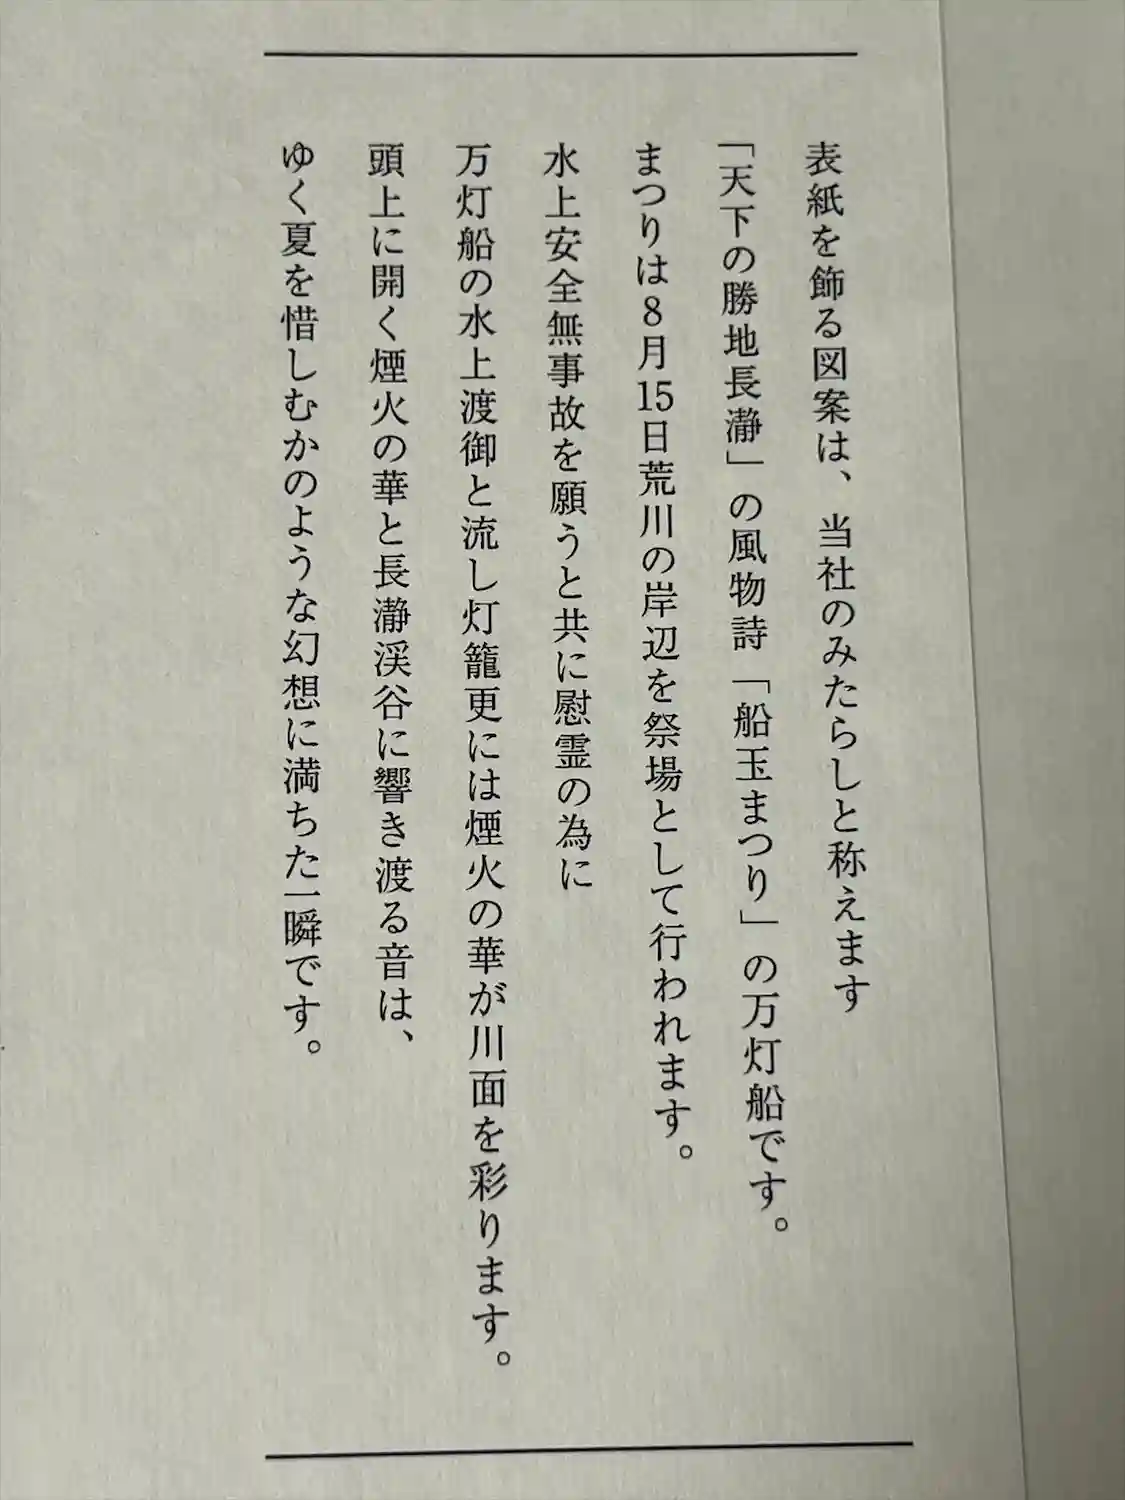 表紙を飾る図案は、当社のみたらしと称えます
「天下の勝地長瀞」の風物詩「船玉まつり」の万灯船です。
まつりは8月15日荒川の岸辺を祭場として行われます。
水上安全無事故を願うと共に慰霊の為に
万灯船の水上渡御と流し灯籠更には煙火の華が川面を彩ります。
頭上に開く煙火の華と長瀞渓谷に響き渡る音は、
ゆく夏を惜しむかのような幻想に満ちた一瞬です。